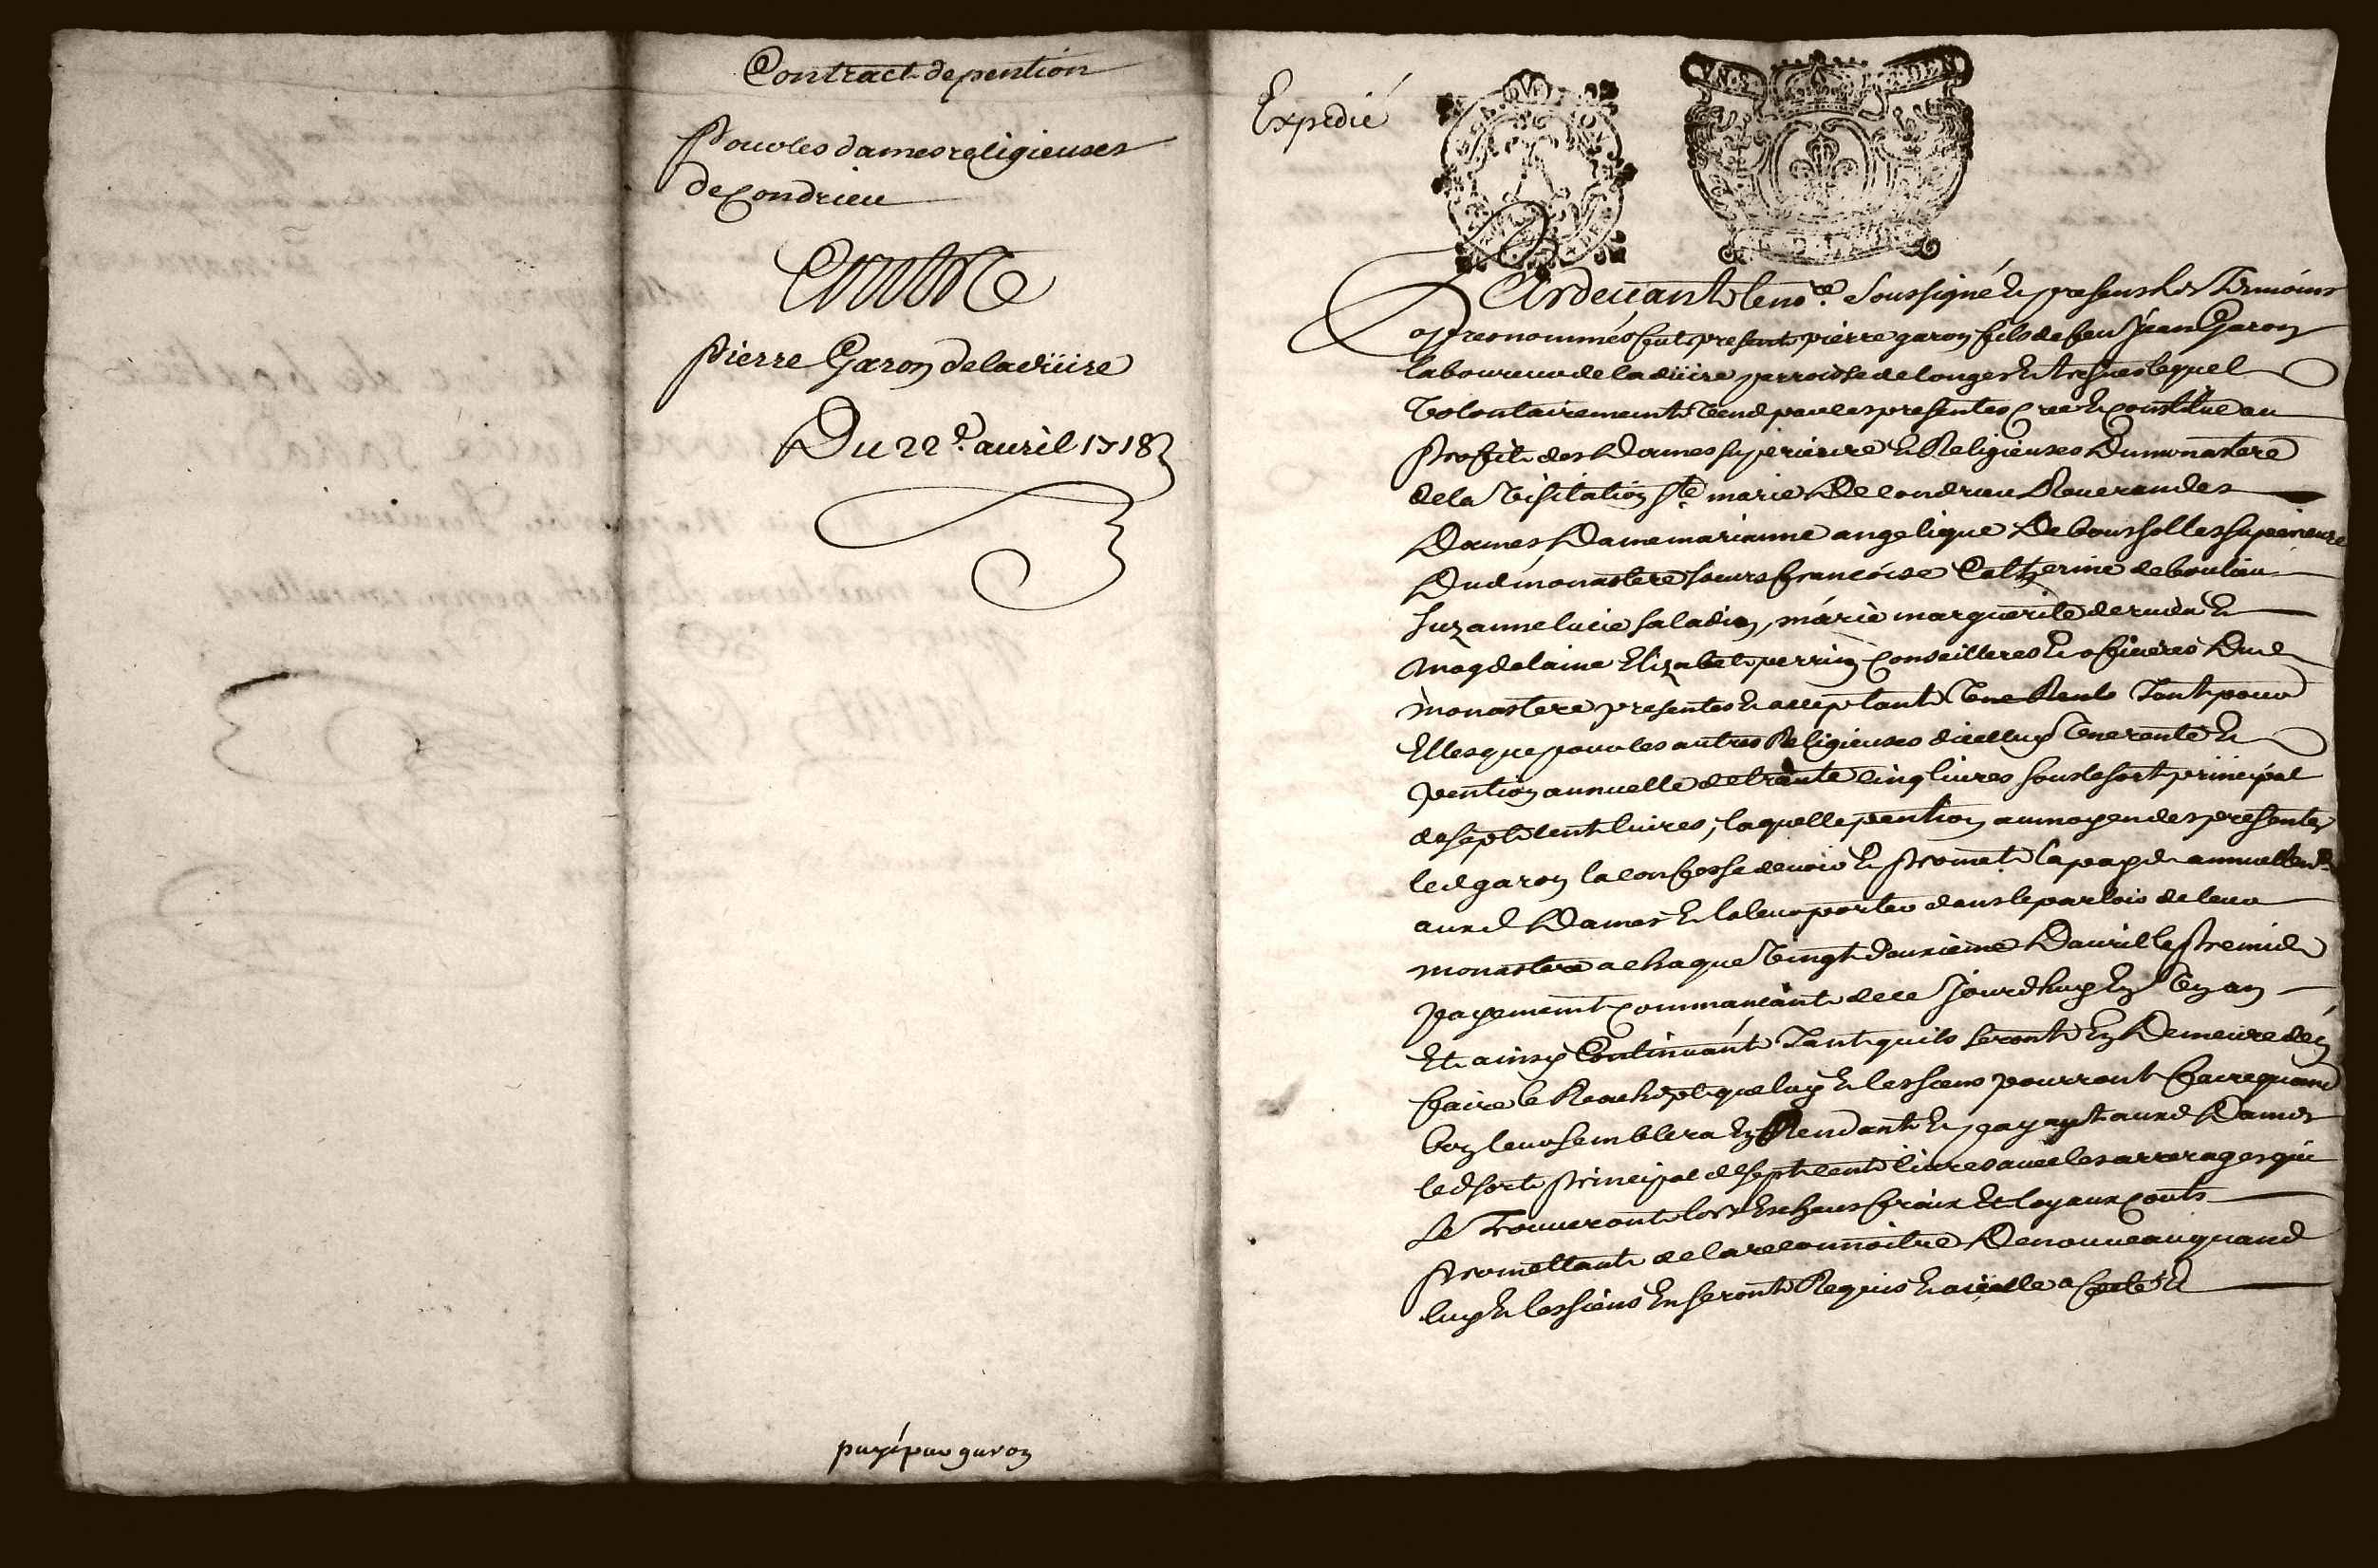 Contract de pention
Pour les dames religieuses
de Condrieu
Contre
Pierre Garon de la diüire
Du 22e. auril 1718
payé par garon
Expedié
Pardeuant le nore. soussigné & presens les temoins
apres nommés fut present pierre garon fils de feu jean Garon
laboureur de la diüire parroisse de longes & treues lequel
volontairement vend par les presentes cree & constitüe au
proffit des Dames superieure & Religieuses du monastere
de la visitation ste. marie de condrieu Reuerandes
Dames Dame marianne angelique de boussolles superieure
dud monastere soeurs francoise Catherine de boulieu
suzanne lucie saladin, marie marguerite de &
magdelaine Elizabet perrin conseilleres & officieres dud
monastere presentes & acceptant une Rente tant pour
Elles que pour les autres Religieuses dicelluy une rente &
pention annuelle de trante cinq liures sous le sort principal
de sept cent liures, laquelle pention au moyen des presentes
led garon la confesse deuoir & promet la payer annuellemt.
auxd Dames & la leur porter dans le parloir de leur
monastere a chaque vingt deuxieme dauril le premier
payement commancant de ce jourdhuy En un an
Et ainsy Continuant tant quils seront En Demeure den
faire le Reachept que luy & les siens pourront faire quand
bon leur semblera En Rendant & payant auxd Dames
led sort principal de sept cent liures auec les arrerages qui
se trouueront lors Escheus fraix Et loyaux couts
promettant de la reconnoitre De nouueau quand
luy & les siens En seront Requis & a icelle afecte &